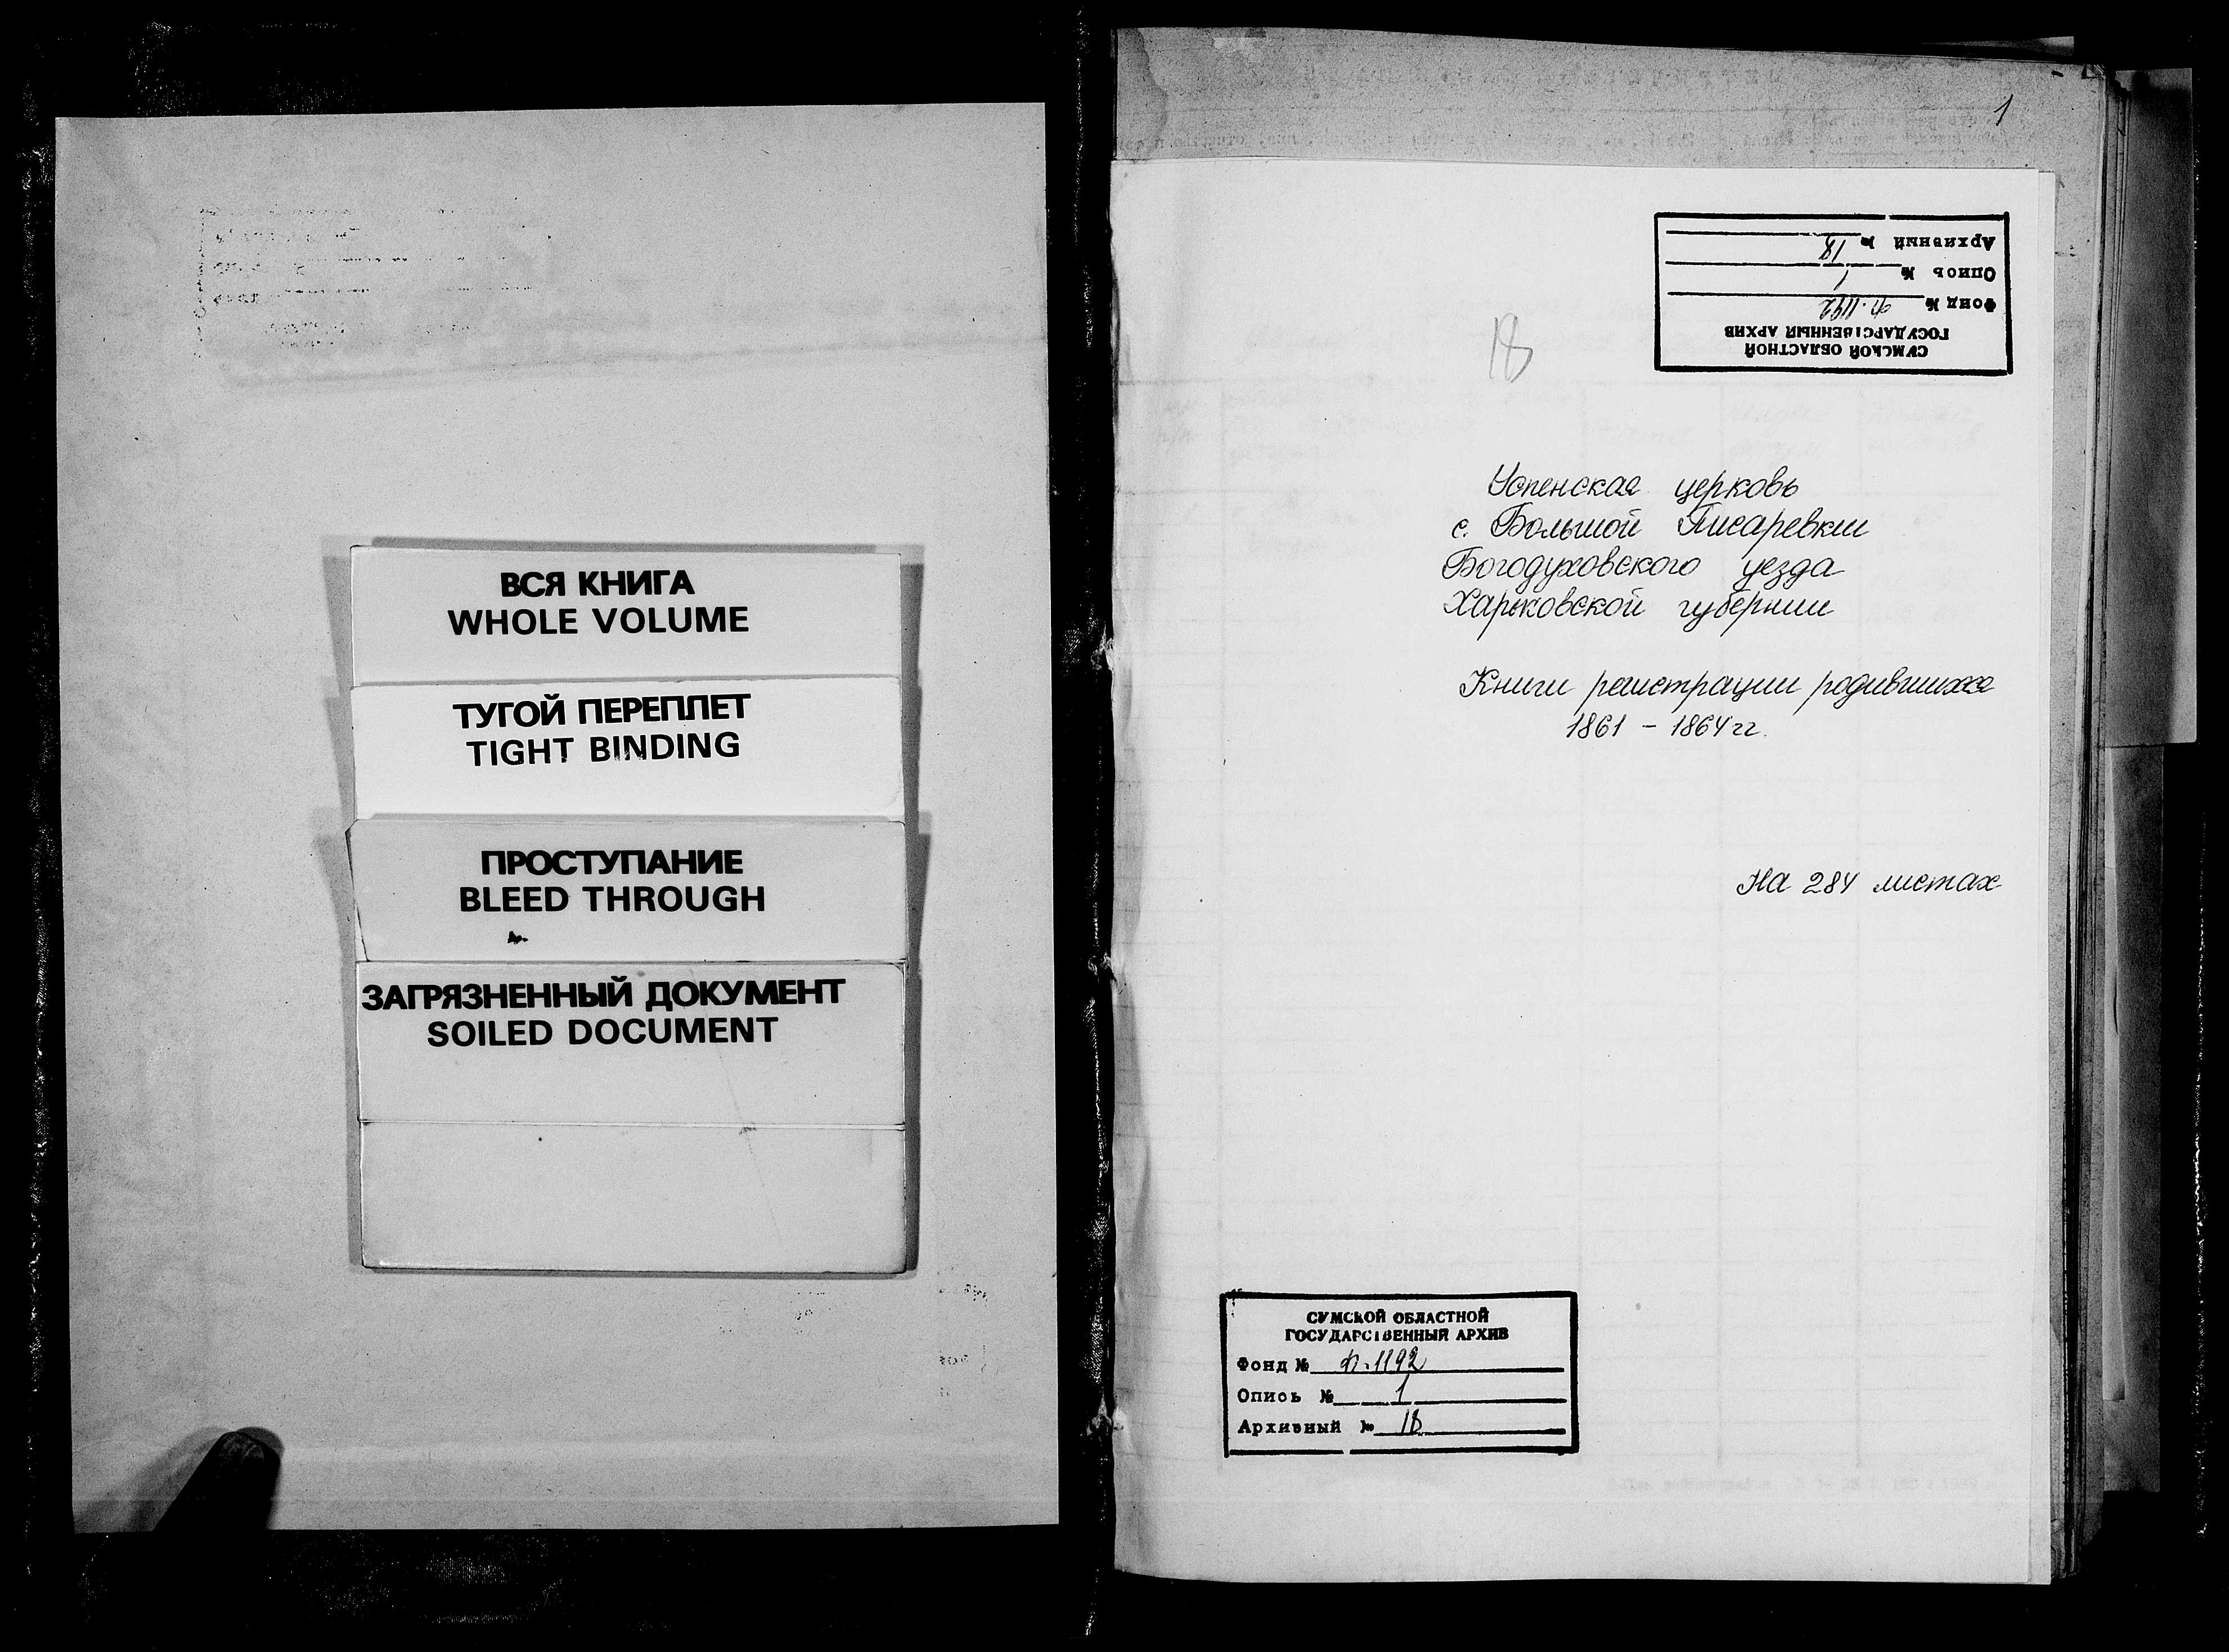 ВСЯ КНИГА
WHOLE VOLUME
ТУГОЙ ПЕРЕПЛЕТ
TIGHT BINDING
ПРОСТУПАНИЕ
BLEED THROUGH
ЗАГРЯЗНЕННЫЙ ДОКУМЕНТ
SOILED DOCUMENT
1
СУМСКОЙ ОБЛАСТНОЙ
ГОСУДАРСТВЕННЫЙ АРХИВ
Фонд № Ф.1192
Опись № 1
Архивный № 18
18
Успенская церковь
с. Большой Писаревки
Богодуховского уезда
Харьковской губернии
Книги регистрации родившихся
1861 - 1864 гг.
На 284 листах
СУМСКОЙ ОБЛАСТНОЙ
ГОСУДАРСТВЕННЫЙ АРХИВ
Фонд № Ф.1192
Опись № 1
Архивный № 18